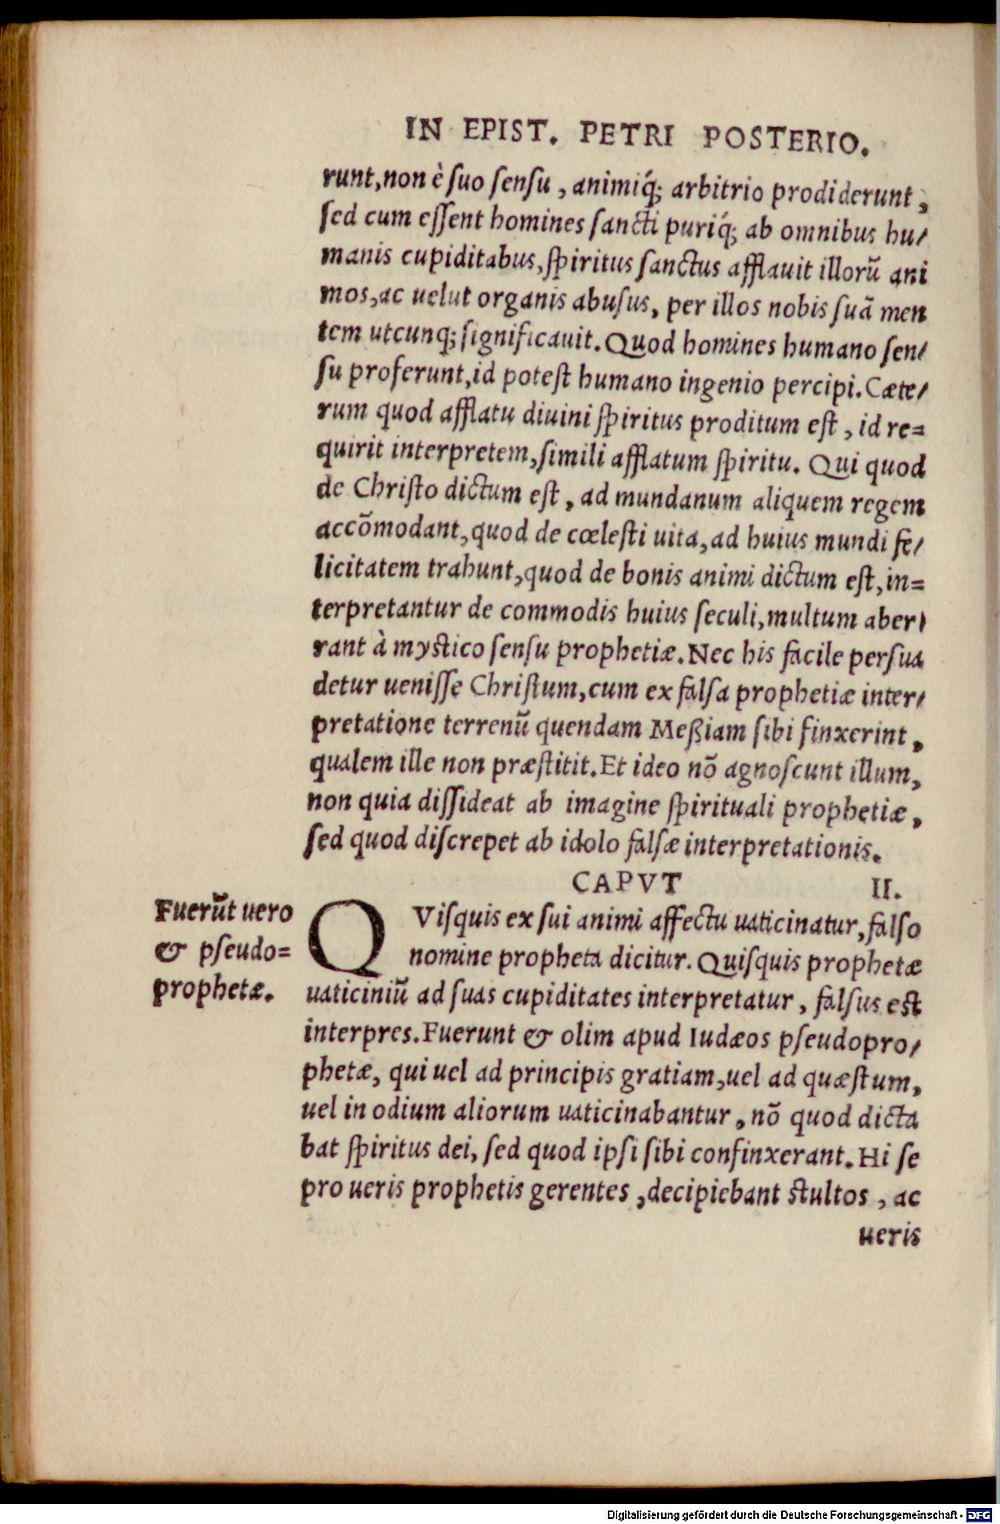 IN EPIST. PETRI POSTERIO.
runt, non è suo sensu, animiq́; arbitrio prodiderunt,
sed cum essent homines sancti puriq́; ab omnibus hu/
manis cupiditabus, spiritus sanctus afflauit illorũ ani
mos, ac uelut organis abusus, per illos nobis suã men
tem utcunq; significauit. Quod homines humano sen/
su proferunt, id potest humano ingenio percipi. Cæte/
rum quod afflatu diuini spiritus proditum est, id re=
quirit interpretem, simili afflatum spiritu. Qui quod
de Christo dictum est, ad mundanum aliquem regem
accõmodant, quod de cœlesti uita, ad huius mundi fe/
licitatem trahunt, quod de bonis animi dictum est, in=
terpretantur de commodis huius seculi, multum aber/
rant à mystico sensu prophetiæ. Nec his facile persua
detur uenisse Christum, cum ex falsa prophetiæ inter/
pretatione terrenũ quendam Meßiam sibi finxerint,
qualem ille non præstitit. Et ideo nõ agnoscunt illum,
non quia dissideat ab imagine spirituali prophetiæ,
sed quod discrepet ab idolo falsæ interpretationis.
CAPVT II.
Fuerũt uero
& pseudo=
prophetæ.
QVisquis ex sui animi affectu uaticinatur, falso
nomine propheta dicitur. Quisquis prophetæ
uaticiniũ ad suas cupiditates interpretatur, falsus est
interpres. Fuerunt & olim apud Iudæos pseudopro/
phetæ, qui uel ad principis gratiam, uel ad quæstum,
uel in odium aliorum uaticinabantur, nõ quod dicta
bat spiritus dei, sed quod ipsi sibi confinxerant. Hi se
pro ueris prophetis gerentes, decipiebant stultos, ac
ueris
Digitalisierung gefördert durch die Deutsche Forschungsgemeinschaft - DFG